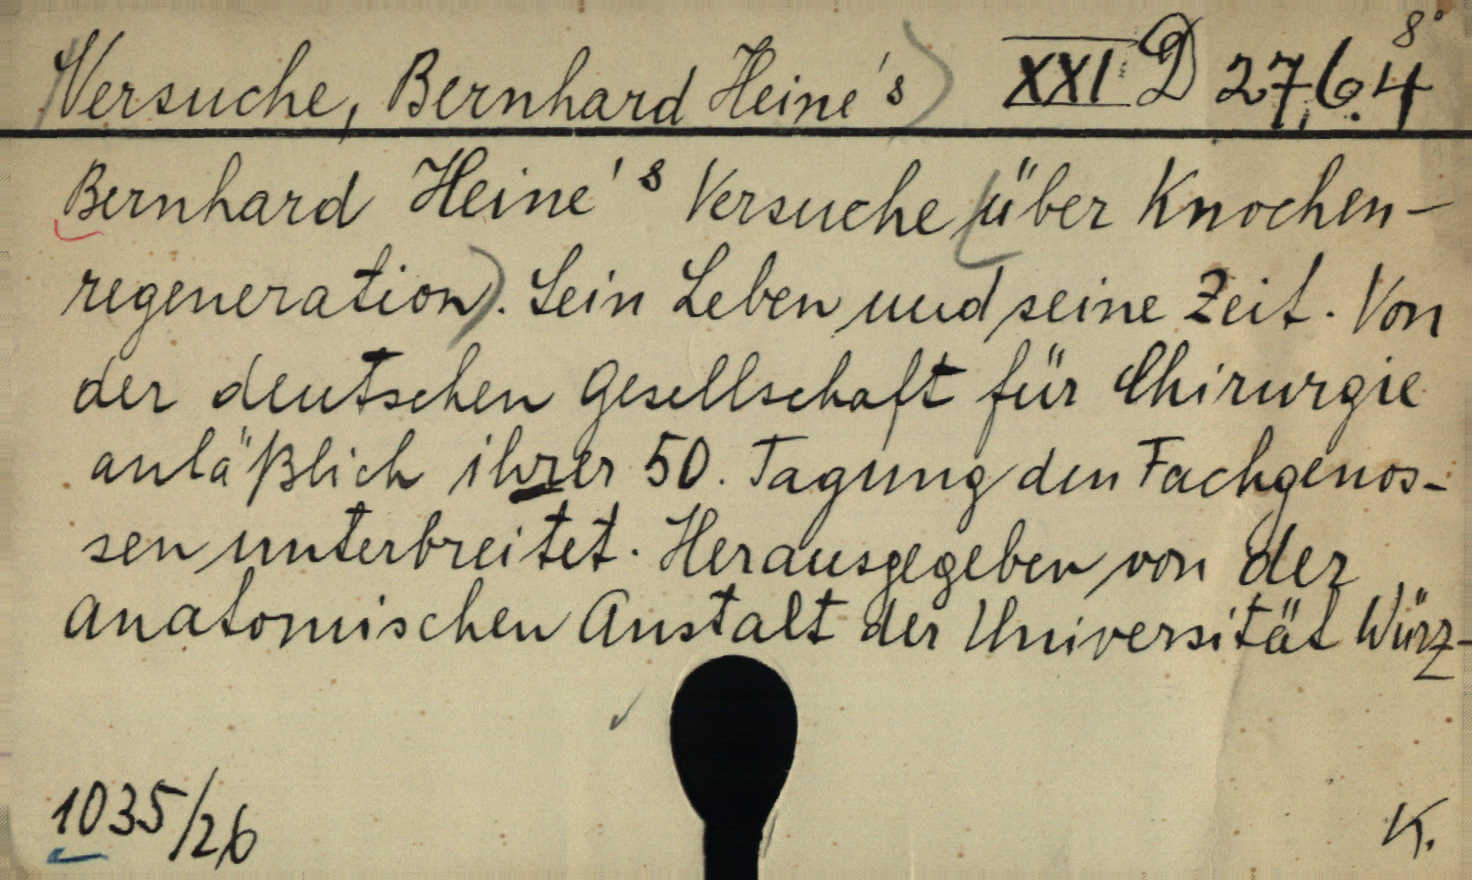 Versuche, Bernhard Heine's) XXI D 27,6.4 8°
Bernhard Heine's Versuche (über Knochen-
regeneration). Sein Leben und seine Zeit. Von
der deutschen Gesellschaft für Chirurgie
anläßlich ihrer 50. Tagung den Fachgenos-
sen unterbreitet. Herausgegeben von der
anatomischen Anstalt der Universität Würz-
1035/26
K.